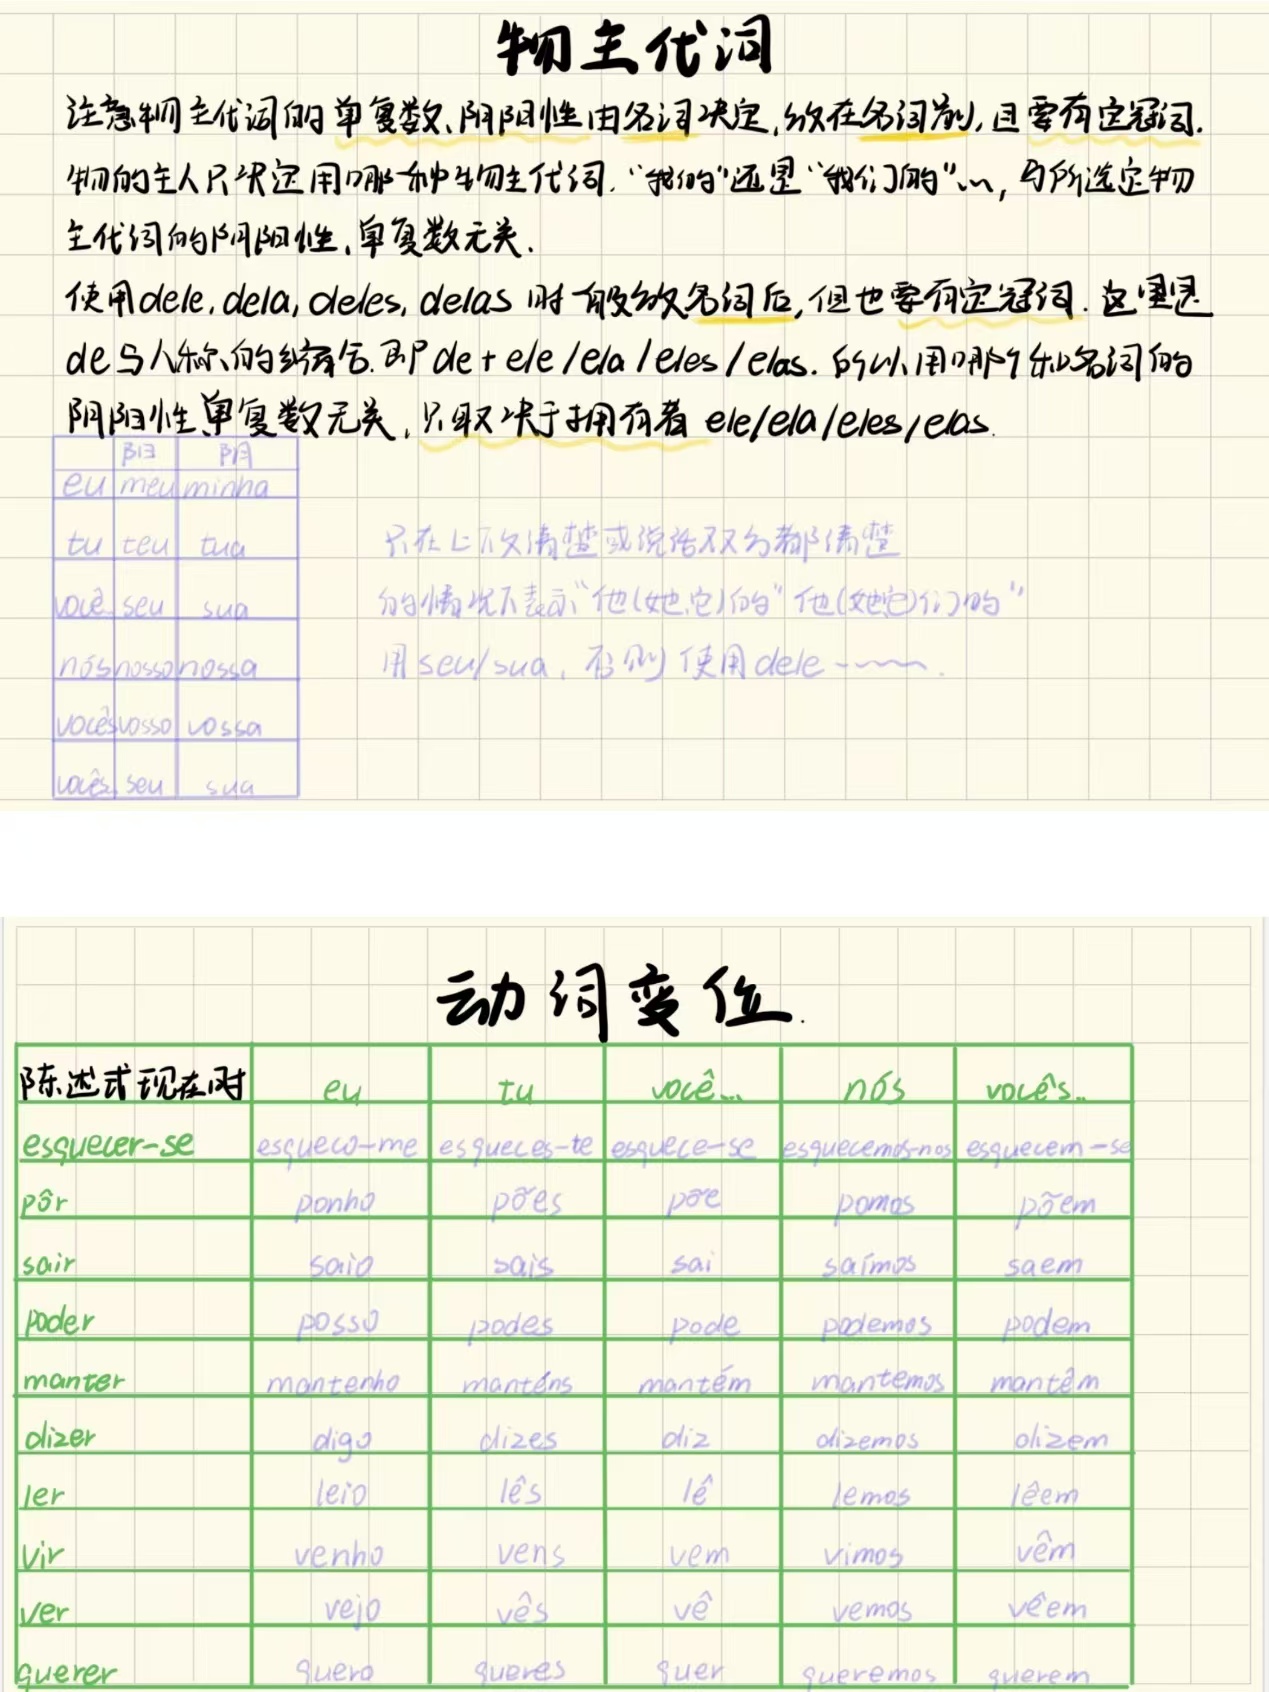 物主代词
注意物主代词的单复数、阴阳性由名词决定,放在名词前,且要有定冠词.
物的主人只决定用哪一种物主代词.“我的”还是“我们的”…,与所选定物
主代词的阴阳性、单复数无关.
使用dele, dela, deles, delas 时一般放名词后,但也要有定冠词.这里是
de与人称的缩写.即 de + ele /ela / eles / elas. 所以用哪个和名词的
阴阳性单复数无关,只取决于拥有者 ele/ela/eles/elas.
阳 阴
eu meu minha
tu teu tua
você seu sua
nós nosso nossa
vocês vosso vossa
vocês seu sua
只在上下文清楚或说话双方都清楚
的情况下表示“他(她,它)的”他(她它)们的”
用seu/sua, 否则使用dele ~~~~.
动词变位.
陈述式现在时 eu tu você... nós vocês..
esquecer-se esqueco-me esqueces-te esquece-se esquecemos-nos esquecem-se
pôr ponho pões põe pomos põem
sair saio sais sai saímos saem
poder posso podes pode podemos podem
manter mantenho manténs mantém mantemos mantêm
dizer digo dizes diz dizemos dizem
ler leio lês lê lemos lêem
vir venho vens vem vimos vêm
ver vejo vês vê vemos vêem
querer quero queres quer queremos querem